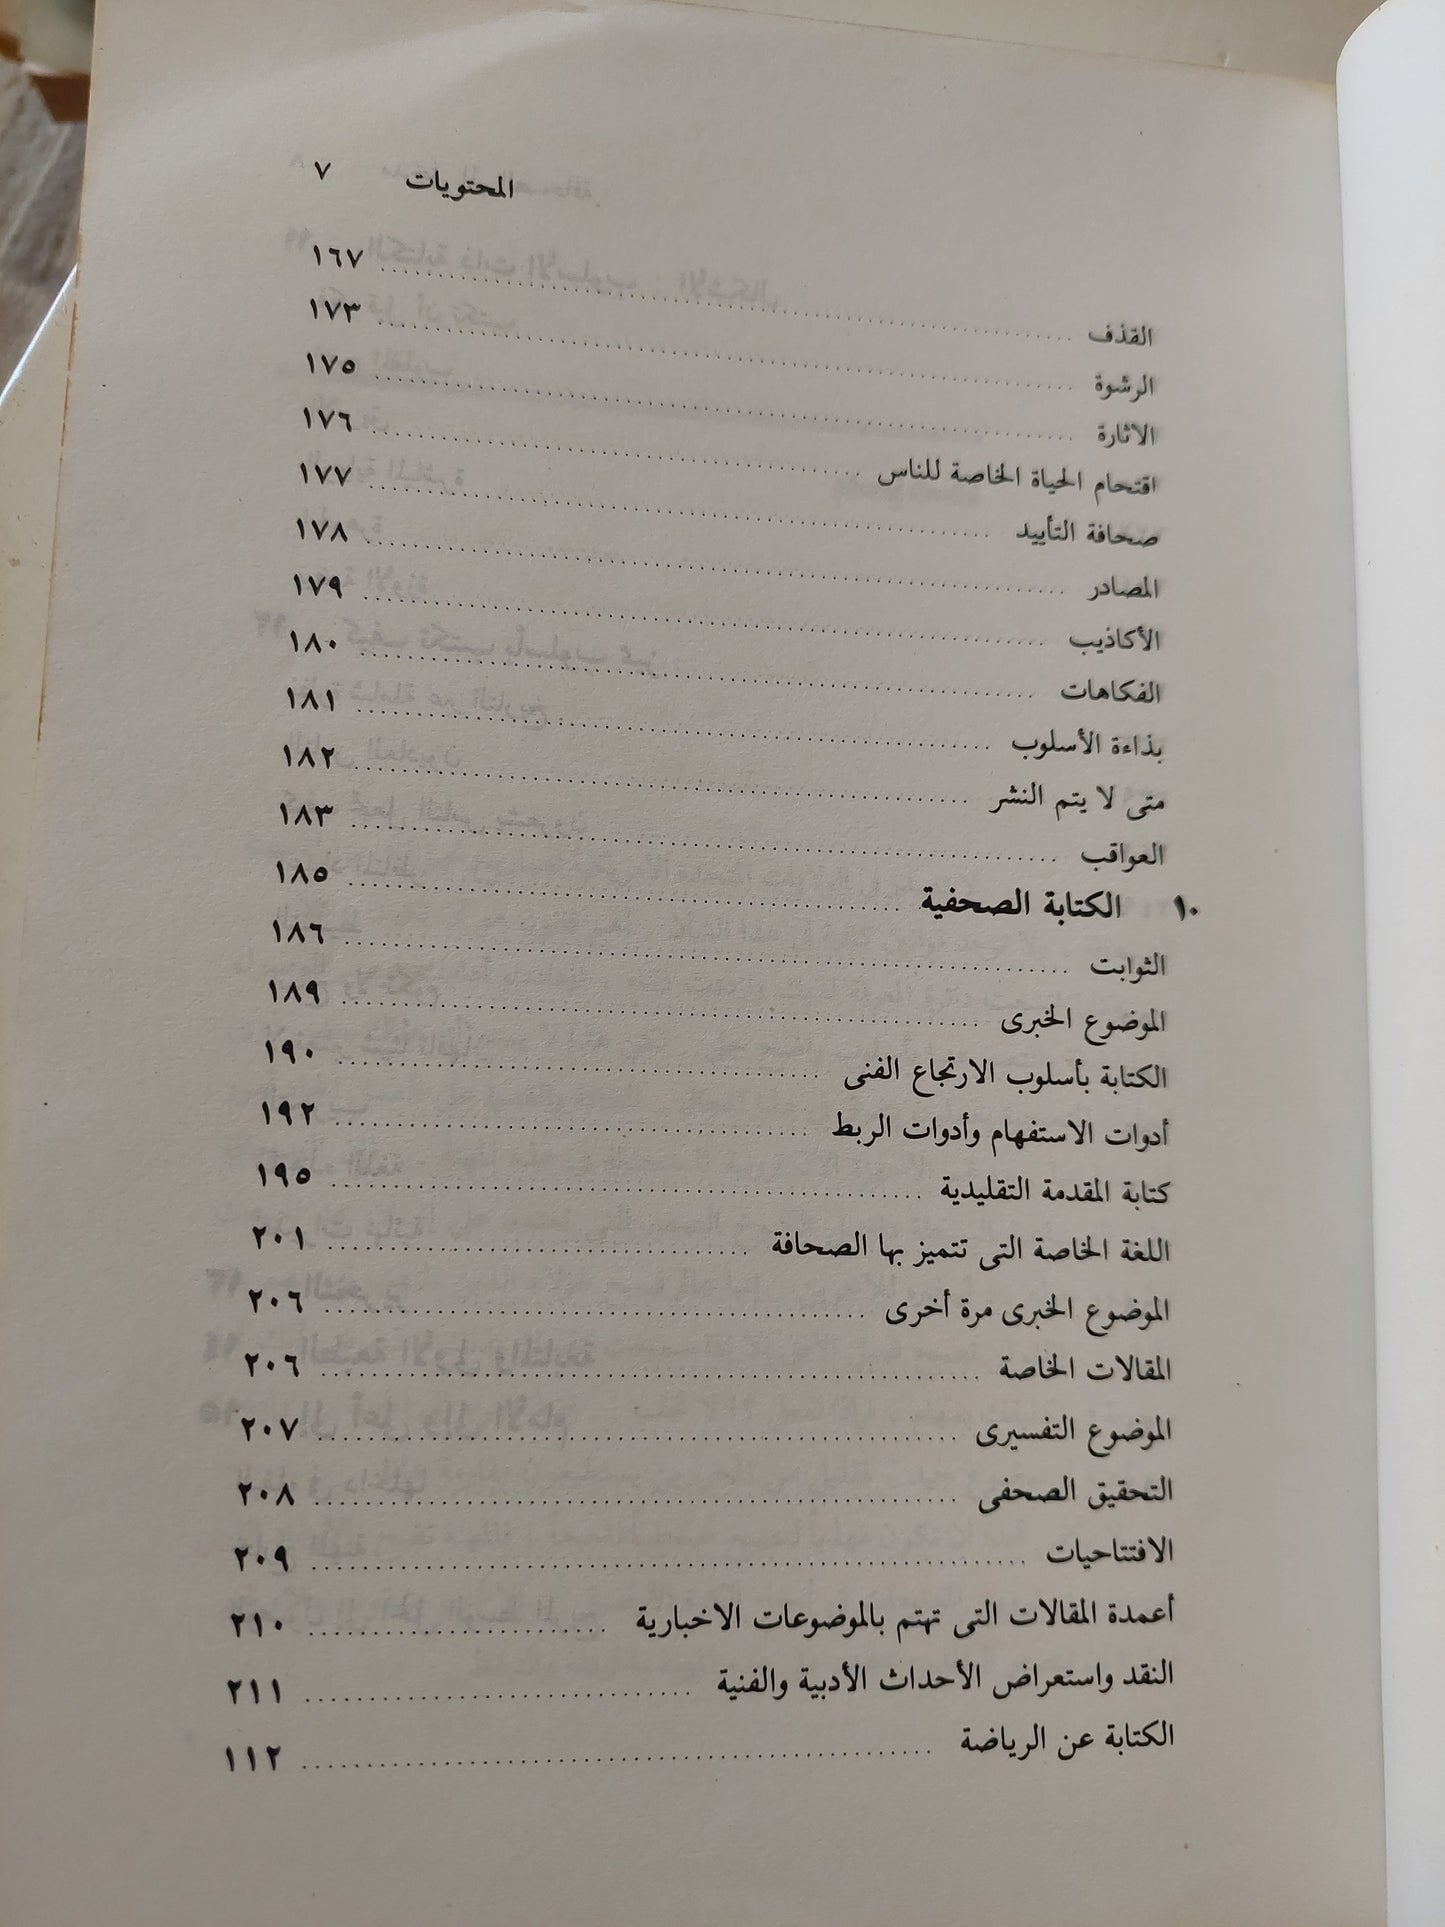 المحتويات ٧
القذف ١٦٧
الرشوة ١٧٣
الاثارة ١٧٥
اقتحام الحياة الخاصة للناس ١٧٦
صحافة التأييد ١٧٧
المصادر ١٧٨
الأكاذيب ١٧٩
الفكاهات ١٨٠
بذاءة الأسلوب ١٨١
متى لا يتم النشر ١٨٢
العواقب ١٨٣
١٠ الكتابة الصحفية ١٨٥
الثوابت ١٨٦
الموضوع الخبرى ١٨٩
الكتابة بأسلوب الارتجاع الفنى ١٩٠
أدوات الاستفهام وأدوات الربط ١٩٢
كتابة المقدمة التقليدية ١٩٥
اللغة الخاصة التى تتميز بها الصحافة ٢٠١
الموضوع الخبرى مرة أخرى ٢٠٦
المقالات الخاصة ٢٠٦
الموضوع التفسيرى ٢٠٧
التحقيق الصحفى ٢٠٨
الافتتاحيات ٢٠٩
أعمدة المقالات التى تهتم بالموضوعات الاخبارية ٢١٠
النقد واستعراض الأحداث الأدبية والفنية ٢١١
الكتابة عن الرياضة ١١٢